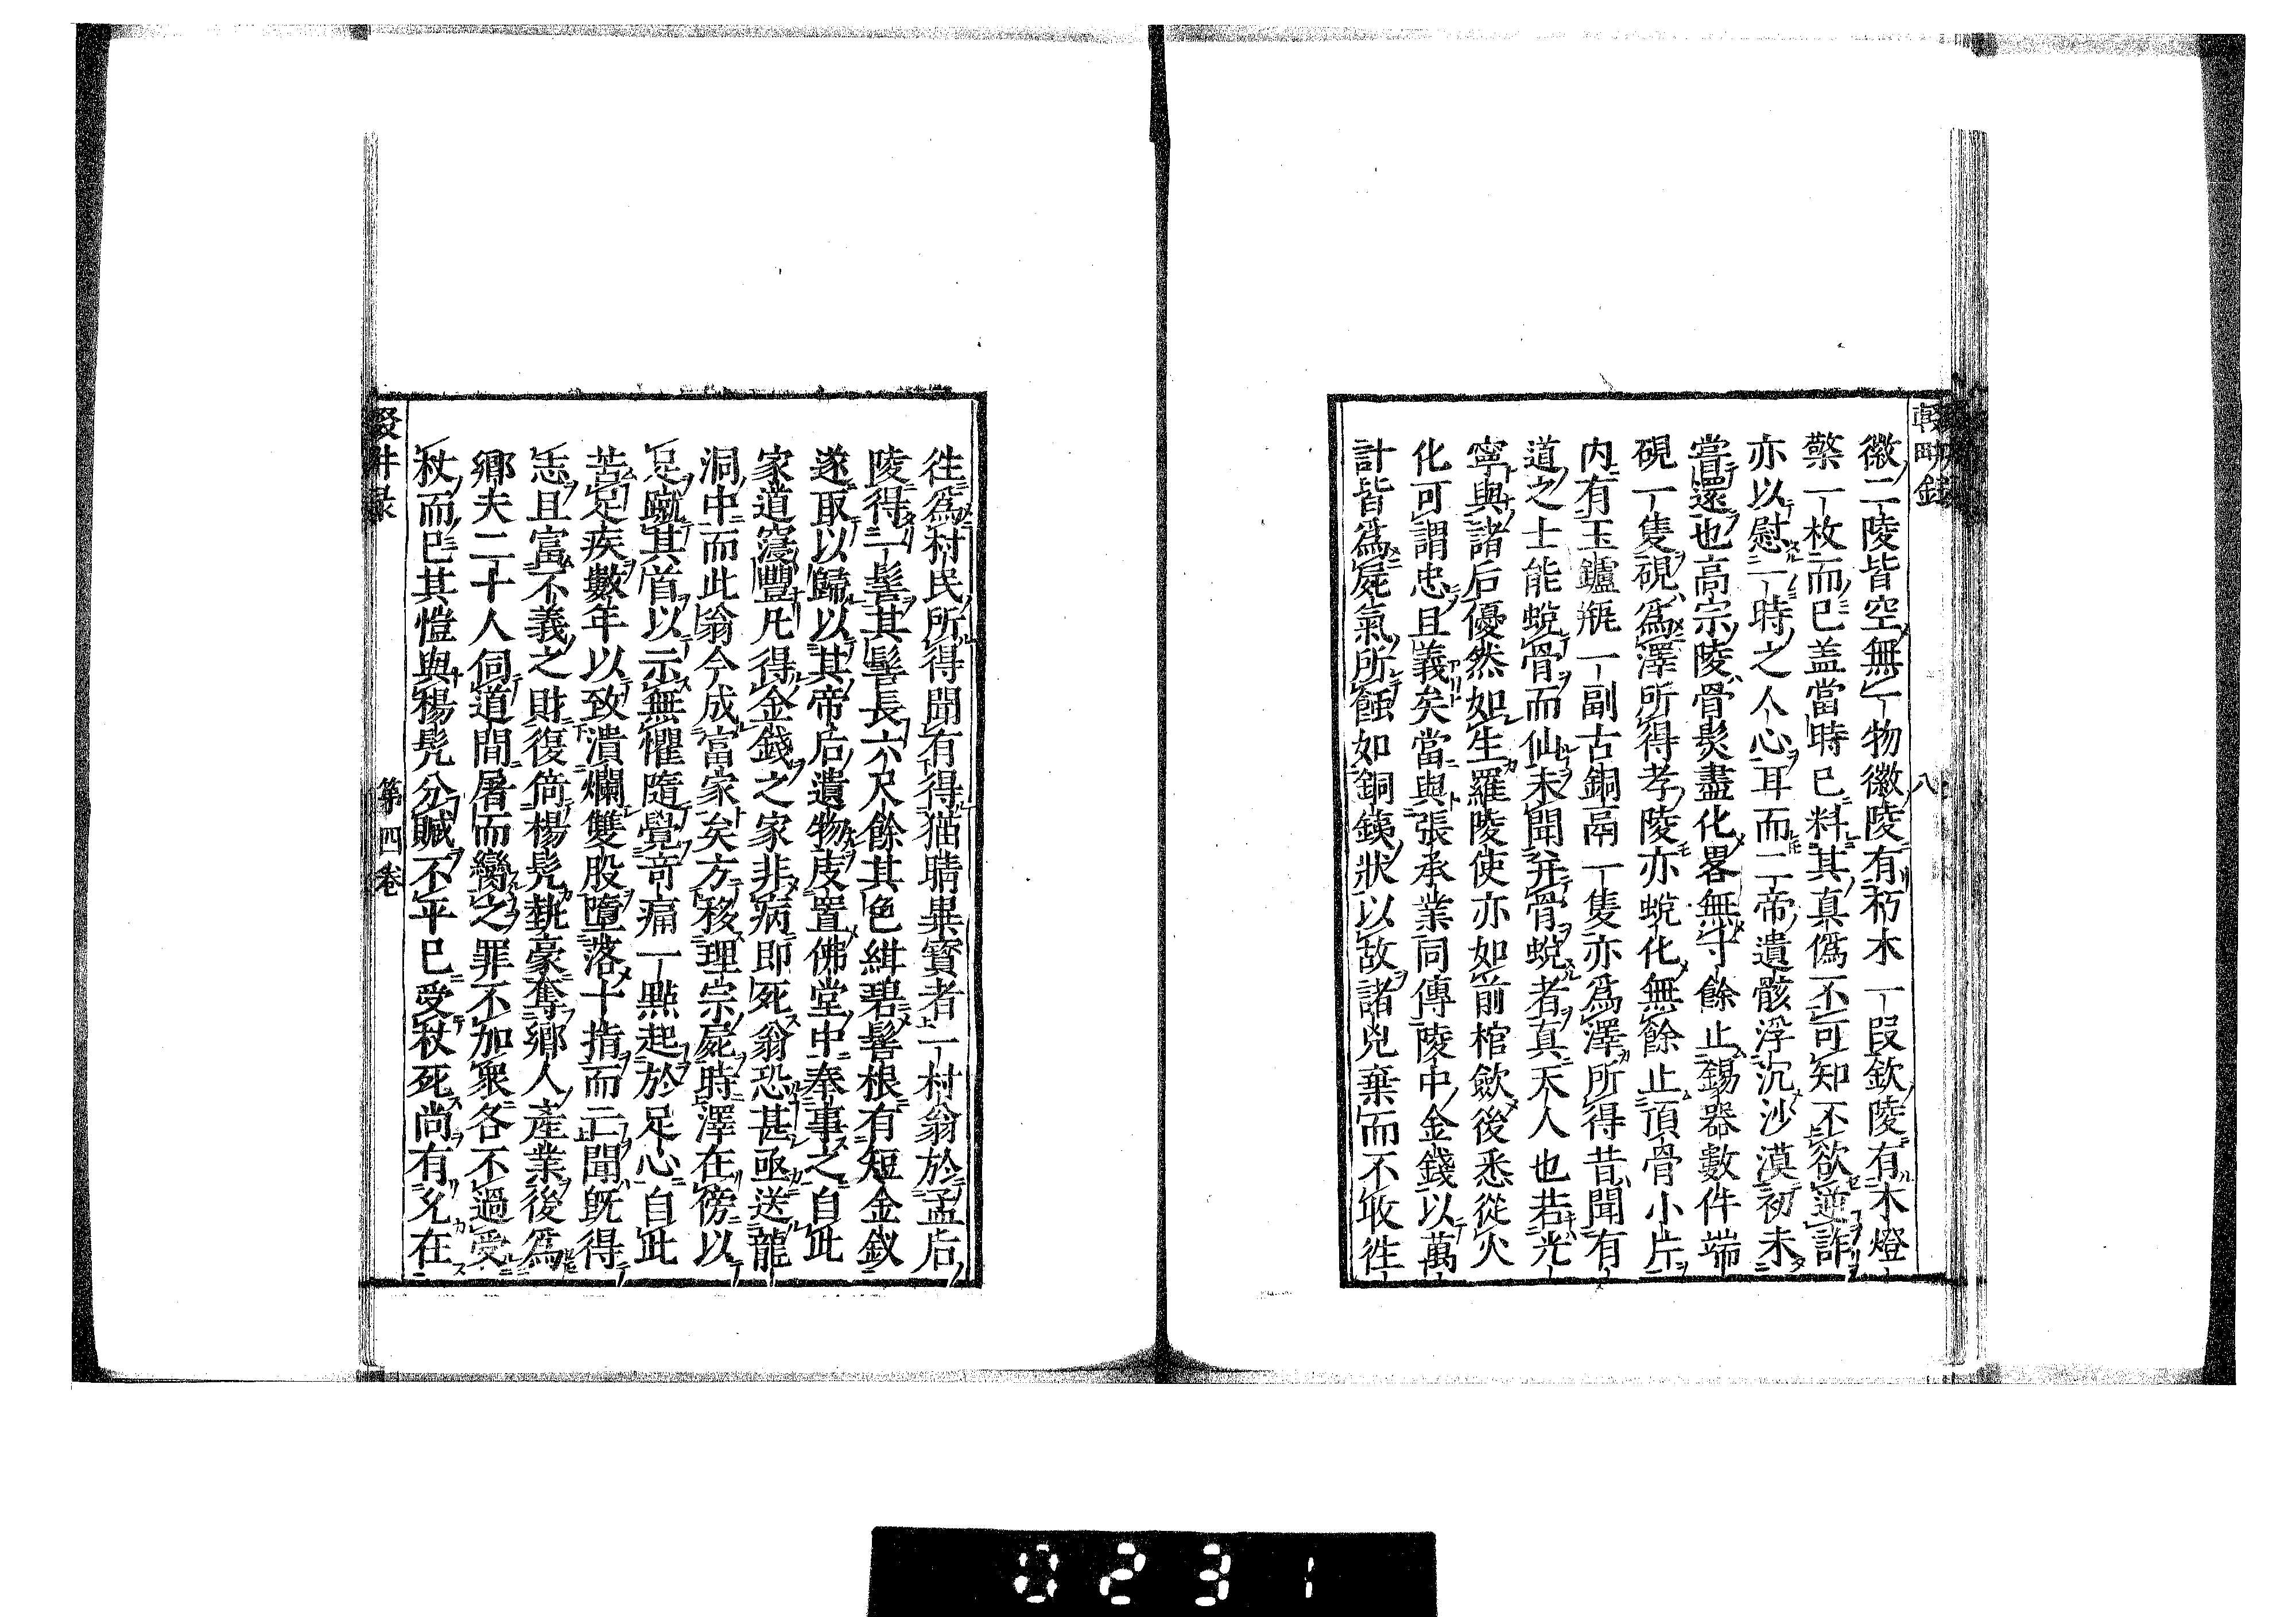 輟畊錄
八
徽二陵皆空無一物徽陵有朽木一叚欽陵有木燈
檠一枚而巳盖當時已料其真僞不可知不欲逆詐
亦以慰一時之人心耳而二帝遺骸浮沉沙漠初未
嘗還也高宗陵骨髮盡化畧無寸餘止錫器數件端
硯一隻硯爲澤所得孝陵亦蛻化無餘止頂骨小片
内有玉鑪瓶一副古銅鬲一隻亦爲澤所得昔聞有
道之士能蛻骨而仙未聞并骨蛻者真天人也若光
寧與諸后優然如生羅陵使亦如前棺歛後悉從火
化可謂忠且義矣當與張承業同傳陵中金錢以萬
計皆爲屍氣所蝕如銅鐵狀以故諸兇棄而不收徃
徃爲村民所得聞有得猫睛異寳者一村翁於孟后
陵得一髻其髻長六尺餘其色紺碧髻根有短金釵
遂取以歸以其帝后遺物庋置佛堂中奉事之自此
家道寖豐凡得金錢之家非病即死翁恐甚亟送龍
洞中而此翁今成富家矣方移理宗屍時澤在傍以
足蹴其首以示無懼隨覺奇痛一點起於足心自此
苦足疾數年以致潰爛雙股墮落十指而二聞旣得
志且富不義之財復倚楊髡勢豪奪鄉人産業後爲
鄉夫二十人伺道間屠而臠之罪不加衆各不過受
杖而巳其愷與楊髡分贓不平已受杖死尚有允在
輟畊录
第四卷
0231